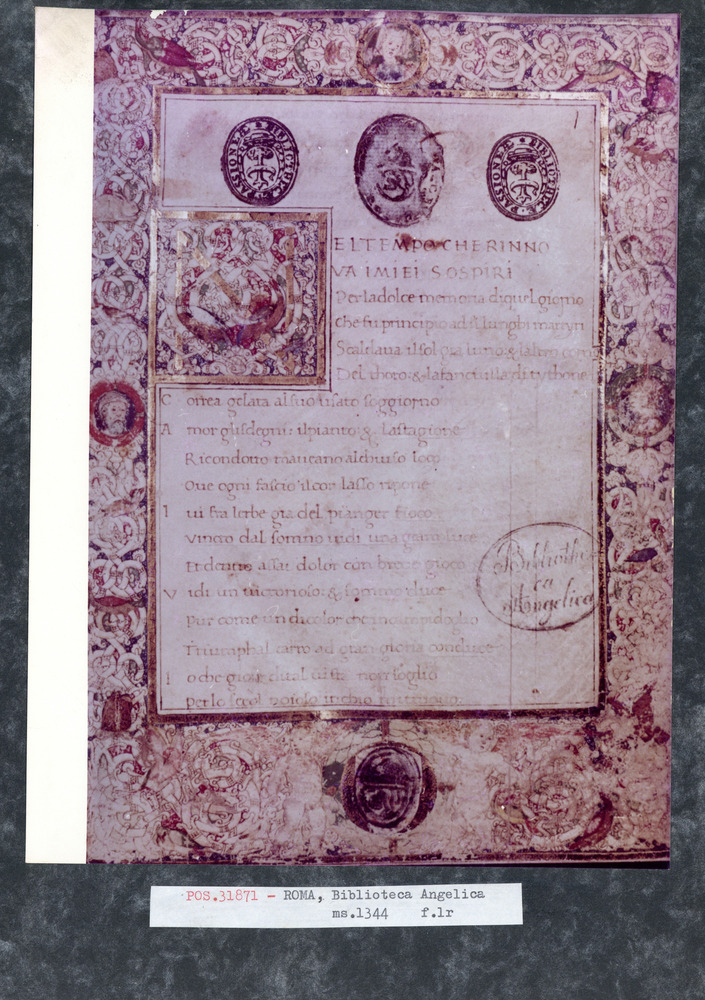 1
PASSIONEÆ * BIBLIOTHEC
PASSIONEÆ * BIBLIOTHEC
N
EL TEMPO CHE RINNO
VA I MIEI SOSPIRI
Per la dolce memoria di quel giorno
Che fu principio ad si lunghi martyri
Scaldaua il sol gia luno & laltro corno
Del thoro: & la fanciulla di tythone
C orrea gelata al suo usato soggiorno
A mor gli sdegni: il pianto: & la stagione
Ricondotto maueano al chiuso loco
Oue ogni fascio il cor lasso ripone
I ui fra lerbe gia del pianger fioco
Vinto dal somno uidi una gran luce
Et dentro assai dolor con breue gioco
V idi un uictorioso: & sommo duce
Pur come un di color che in campidoglio
Triumphal carro ad gran gloria conduce
I o che gioir di tal uista non soglio
Per lo secol noioso in chio mi trouo
Bibliothe
ca
Angelica
POS.31871 - ROMA, Biblioteca Angelica
ms.1344 f.1r